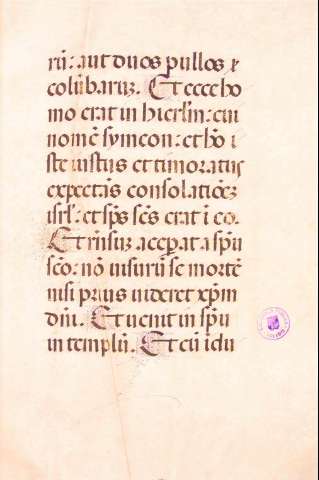 rū: aut duos pullos &
colūbaruꝫ. Et ecce ho
mo erat in hierl̄m: cui
nomē symeon: et hō i
ste iustus et timoratus
expectās consolationēꝫ
isrl̄: et sp̄s sc̄s erat ī eo.
Et rn̄suꝫ acceperat a sp̄u
sc̄o: nō uisurū se mortē
nisi prius uideret xp̄m
dn̄i. Et uenit in sp̄u
in templū. Et cū īdu